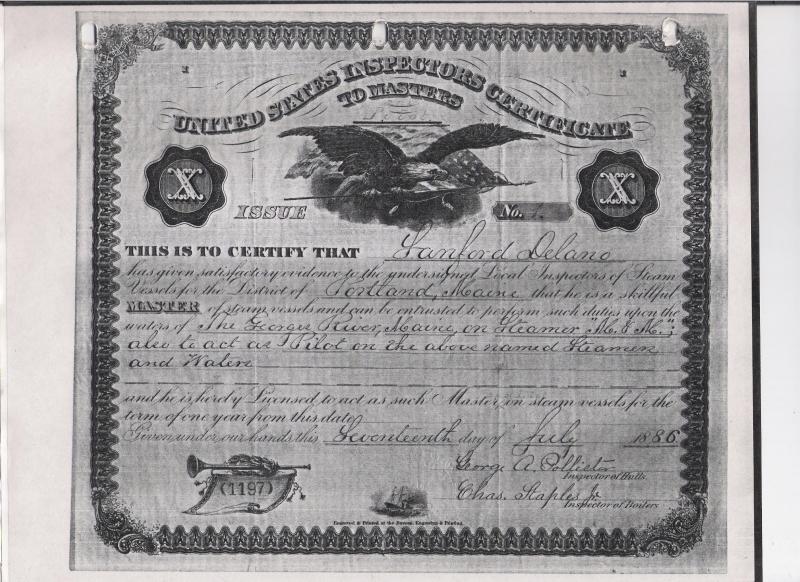 UNITED STATES INSPECTORS CERTIFICATE
TO MASTERS
X
X
ISSUE
No. 1.
THIS IS TO CERTIFY THAT Sanford Delano
has given satisfactory evidence to the undersigned Local Inspectors of Steam
Vessels for the District of Portland, Maine that he is a skillful
MASTER of steam vessels and can be entrusted to perform such duties upon the
waters of The Georges River, Maine, on Steamer "M. & M.";
also to act as Pilot on the above named Steamer
and Waters
and he is hereby Licensed to act as such Master in steam vessels for the
term of one year from this date.
Given under our hands this Seventeenth day of July 1886
George A. Pollister
Inspector of Hulls.
Chas. Staples Jr
Inspector of Boilers
(1197)
Engraved & Printed at the Bureau, Engraving & Printing.